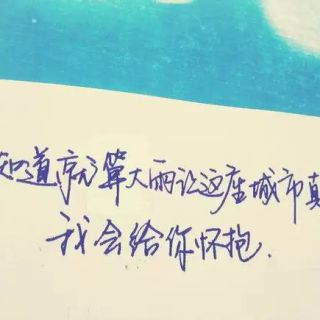 知道就算大雨让这座城市真
我会给你怀抱.